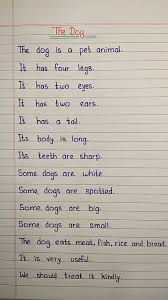 The Dog
The dog is a pet animal.
It has four legs.
It has two eyes.
It has two ears.
It has a tail.
Its body is long.
Its teeth are sharp.
Some dogs are white
Some dogs are spotted.
Some dogs are big.
Some dogs are small.
The dog eats meat, fish, rice and bread.
It is very useful.
We should treat it kindly.